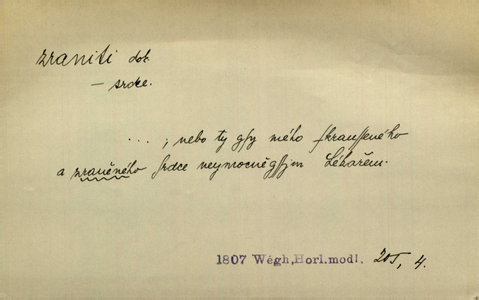 zraniti dok.
— srdce.
. . . , nebo ty gsy mého skrausseného
a zraněného srdce neymocněgssjm Lékařem.
1807 Wégh,Horl.modl. 205, 4.